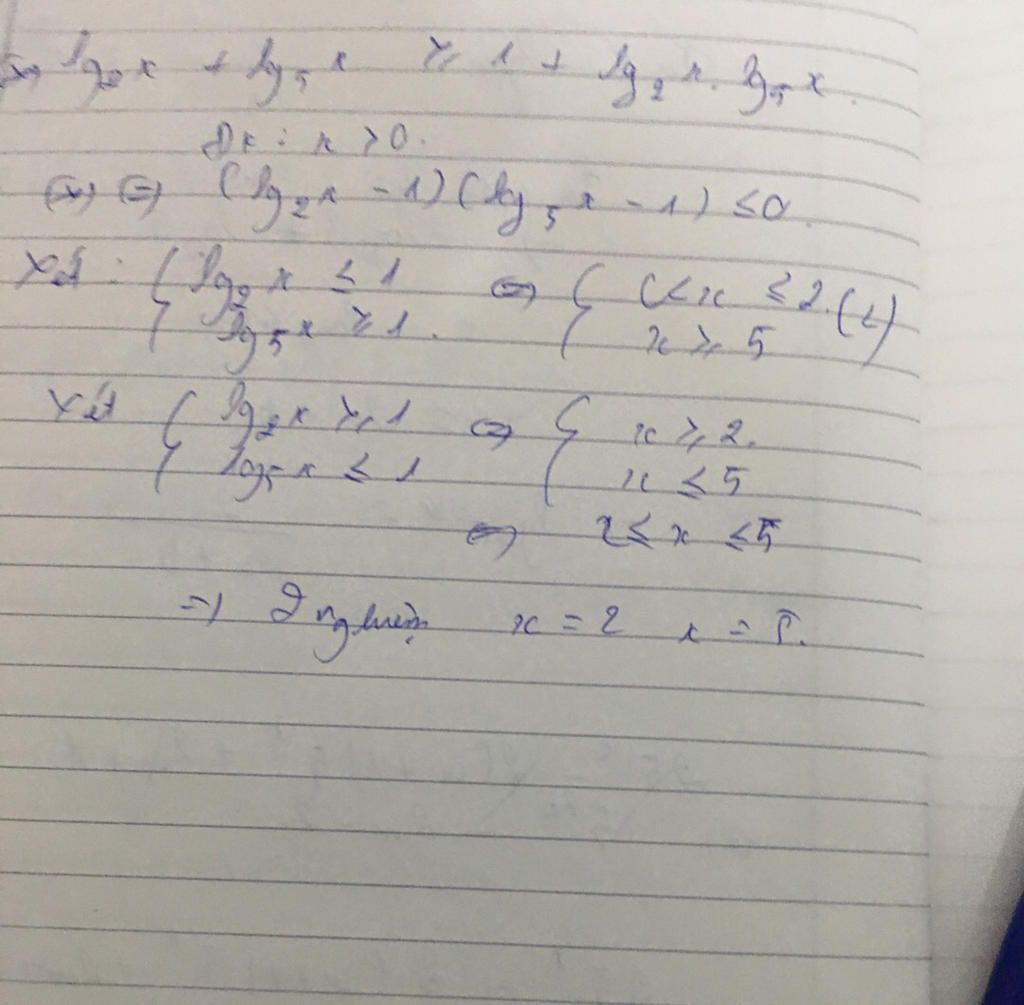 (*) lg₂x + lg₅x ≥ 1 + lg₂x. lg₅x.
Đk: x > 0.
(*) ⇔ (lg₂x - 1)(lg₅x - 1) ≤ 0.
Xét: { lg₂x ≤ 1 ⇔ { 0 < x ≤ 2. (L)
lg₅x ≥ 1. x ≥ 5
Xét { lg₂x ≥ 1 ⇔ { x ≥ 2.
lg₅x ≤ 1 x ≤ 5
⇔ 2 ≤ x ≤ 5
=) 2 nghiệm x = 2 x = 5.